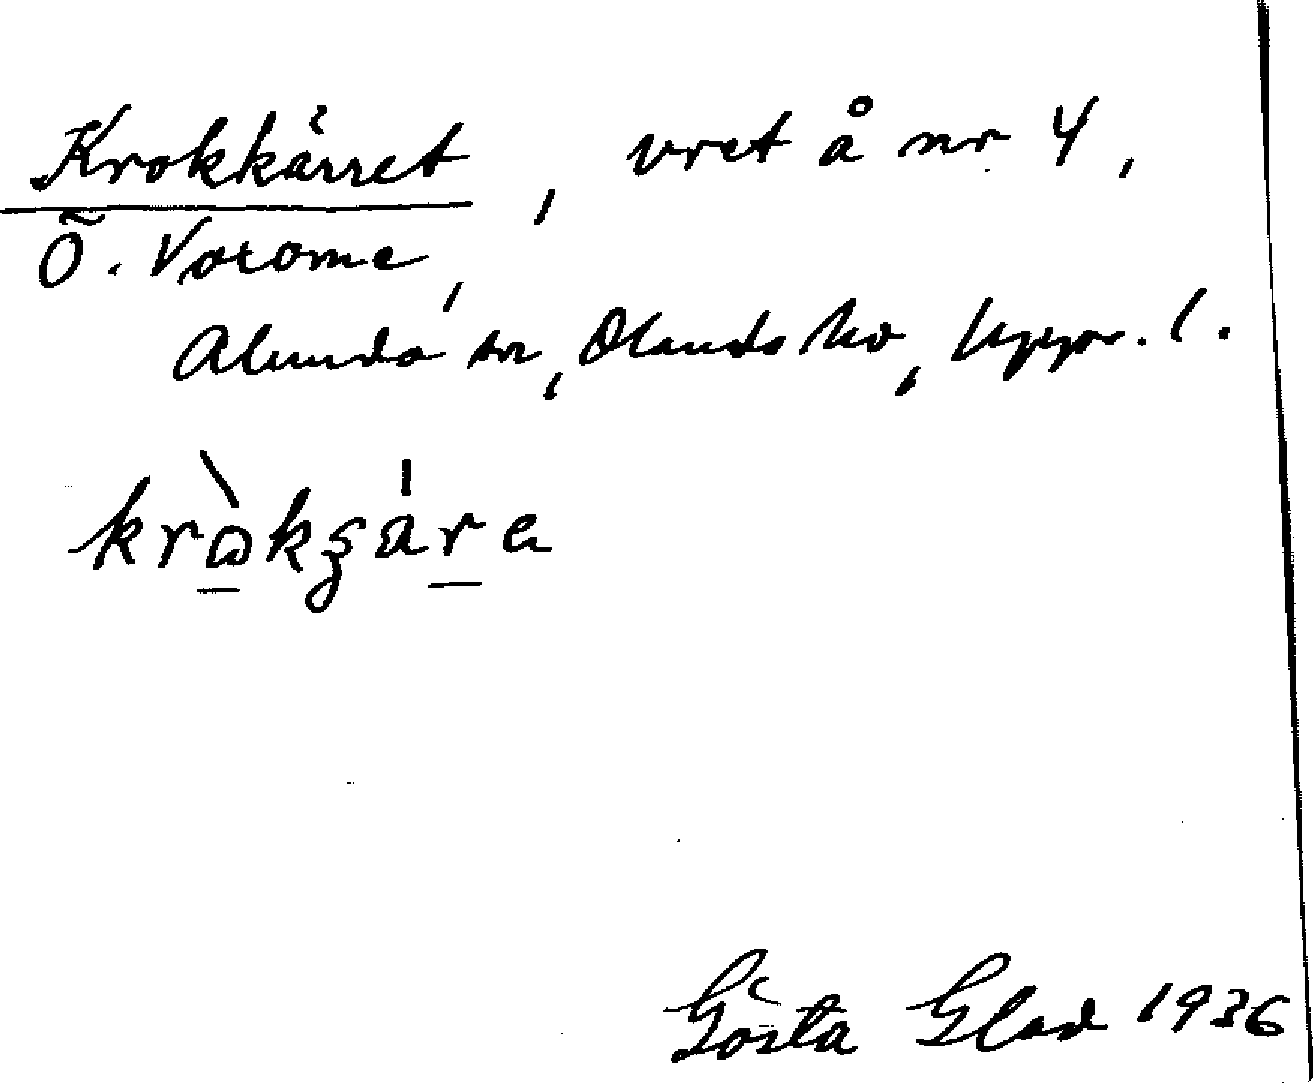 Krokkärret, vret å nr 4,
Ö. Vorome,
Alunda sn, Olands hd, Upps. l.
kròkʒára
Gösta Glad 1936